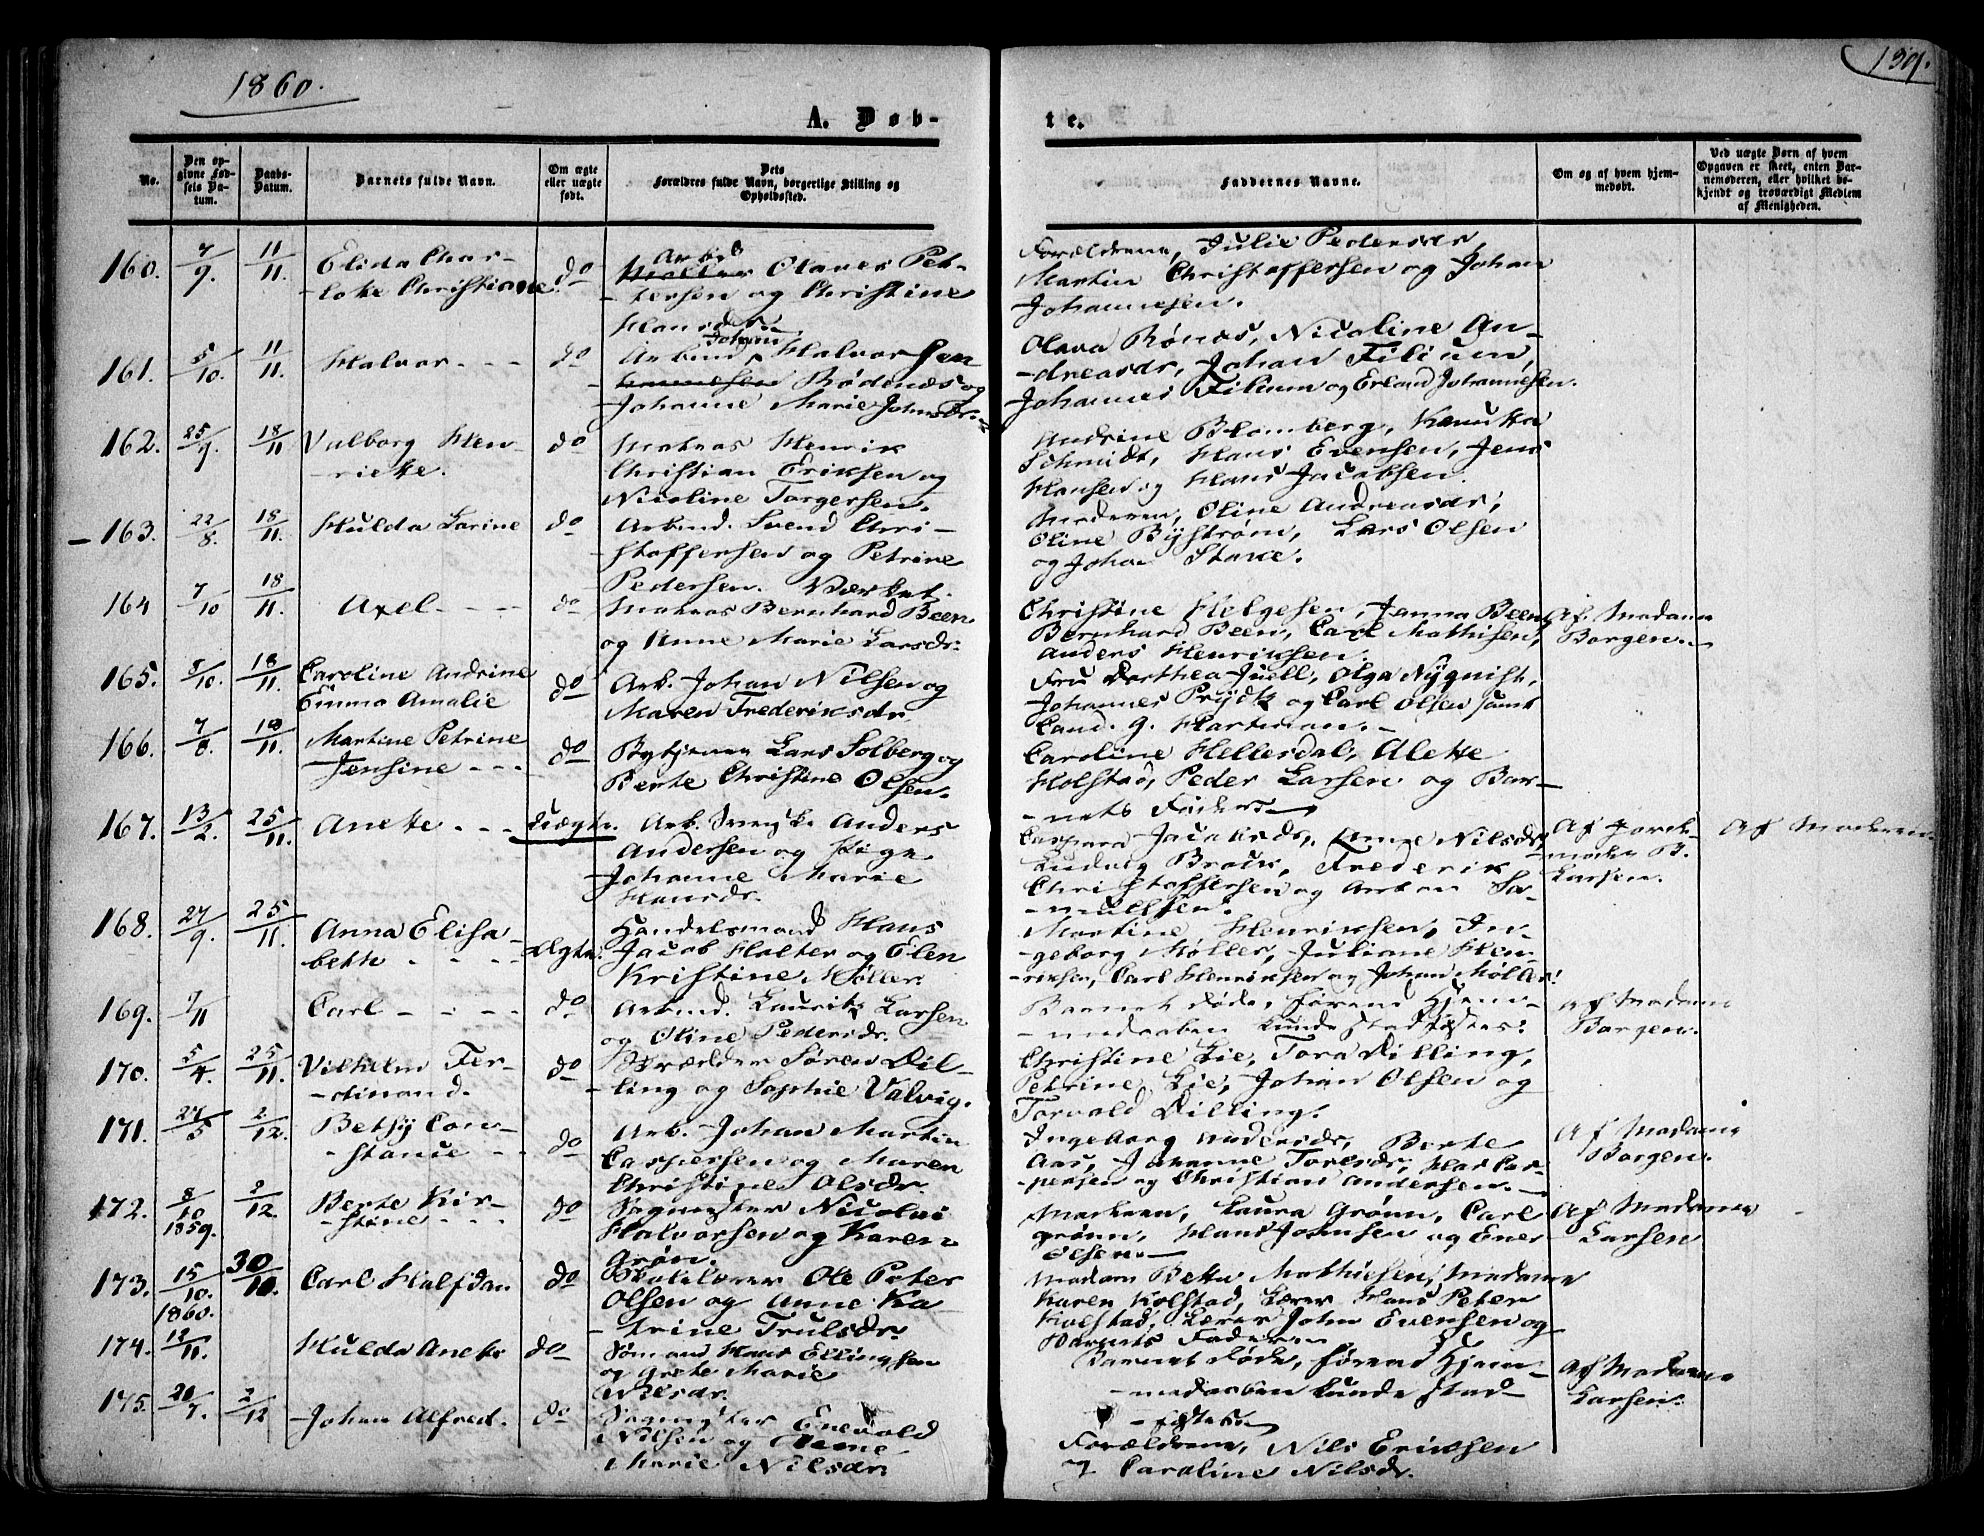 1860.
139.
A. Døb-
te.
No.
Den op-
givne Fød-
sels Da-
tum.
Daabs-
Datum.
Barnets fulde Navn.
Om ægte
eller uægte
født.
Dets
Forældres fulde Navn, borgerlige Stilling og
Opholdssted.
Faddernes Navne.
Om og af hvem hjem-
medøbt.
Ved uægte Børn af hvem
Opgaven er skeet, enten Bar-
nemoderen, eller hvilket be-
kjendt og troværdigt Medlem
af Menigheden.
160. 7/9. 11/11. Elida Char-
-lotte Christiane do
Arbd Olaves Pet-
-tersen og Christine
Hansdr.
Forældrene, Julie Pedersdr,
Martin Christoffersen og Johan
Johannesen.
161. 5/10. 11/11. Halvor - - - do
Johan
Arbmd, Halvorsen
Rødenæs og
Johanne Marie Johnsdr.
Olava Rønes, Nicoline An-
-dreasdr, Johan Filium,
Johannes Filium og Erland Johannesen.
162. 25/9. 18/11 Valborg Hen-
-riette. do
Matros Henrik
Christian Eriksen og
Nicoline Torgersen.
Andrine Blomberg,
Schmidt, Hans Evensen, Jens
Hansen og Hans Jacobsen.
163. 22/8. 18/11. Hulda Larine do
Arbmd. Svend Chri-
stoffersen og Petrine
Pedersen. Værket.
Moderen, Oline Andreasdr,
Oline Bystrøm, Lars Olsen
og Johan
164 7/10 18/11. Axel - - - - do
Matros Bernhard Been
og Anne Marie Larsdr.
Christine Helgesen, Janna Been,
Bernhard Been, Carl Mathisen,
Anders Henriksen.
Af Madame
Borgen. -
165. 8/10. 18/11. Caroline Andrine
Emma Amalie do
Arb. Johan Nilsen og
Maren Frederiksdr.
Fru Dorthea Juell, Olga Nyqvist,
Johannes Prydtz og Carl Olsen samt
Cand. G. Hartman. -
166. 7/8. 18/11. Martine Petrine
Jensine - - - do
Bytjener Lars Solberg og
Berte Christine Olsen.
Caroline Hellesdal, Alette
Holstad, Peder Larsen og Bar-
-nets Fader.
167. 13/2. 25/11. Anette - - - Uægte.
Arb. Svenske Anders
Andersen og Pige
Johanne Marie
Hansdr.
Caspara Jacobsdr, Anne Nilsdr,
Ludvig Bruun, Frederik
Christoffersen og Anton Sa-
-muelsen.
Af Jorde-
moder B.
Larsen.
Af Moderen.
168. 27/9. 25/11. Anna Elisa-
bette - - - Ægte.
Handelsmand Hans
Jacob Holter og Elen
Kristine Møller.
Martine Henriksen, In-
-geborg Møller, Juliane Hen-
-riksen, Carl Henriksen og Johan Møller.
169. 7/11 Carl - - - - do
Arbmd. Laurits Larsen
og Oline Pedersdr.
Barnet døde, førend Hjem-
-medaaben kunde stadfæstes.
Af Madame
Borgen.
170. 5/4. 25/11. Vilhelm Fer-
-dinand. do
Skrædder Søren Dil-
-ling og Sophie Valvig.
Christine Lie, Tora Dilling,
Petrine Lie, Johan Olsen og
Torvald Dilling.
171. 27/5 2/12. Betsy Con-
-stance - - do
Arb. Johan Martin
Caspersen og Maren
Christine Olsdr.
Ingeborg Andersdr, Berte
Aas, Johanne Torlsdr, Cas-
-persen og Christian Andersen. -
Af Madame
Borgen.
172. 8/10 1859. 2/12. Berte Kir-
-stine - - - do
Sagmester Nicolai
Halvorsen og Karen
Grøn.
Moderen, Laura Grønn, Carl
Grønn, Hans Johnsen og Ener
Olsen. -
Af Madame
Larsen
173. 15/10. 1860. 30/10. Carl Halfdan do
Skolelærer Ole Peter
Olsen og Anne Ka-
-trine Trulsdr.
Madam Betta Mathiesen, Madame
Karen Kolstad, Lærer Hans Peter
Kolstad, Lærer John Evensen og
Barnets Fader.
174. 12/11. Hulda Anette do
Sømand Hans Ellingsen
og Grete Marie
Nilsdr.
Barnet døde, førend Hjem-
-medaaben kunde stad-
-fæstes.
Af Madame
Larsen.
175. 20/7. 2/12 Johan Alfred. do
Sagmester Enevald
Nilsen og Anne
Marie Nilsdr.
Forældrene, Nils Eriksen
og Caroline Nilsdr.